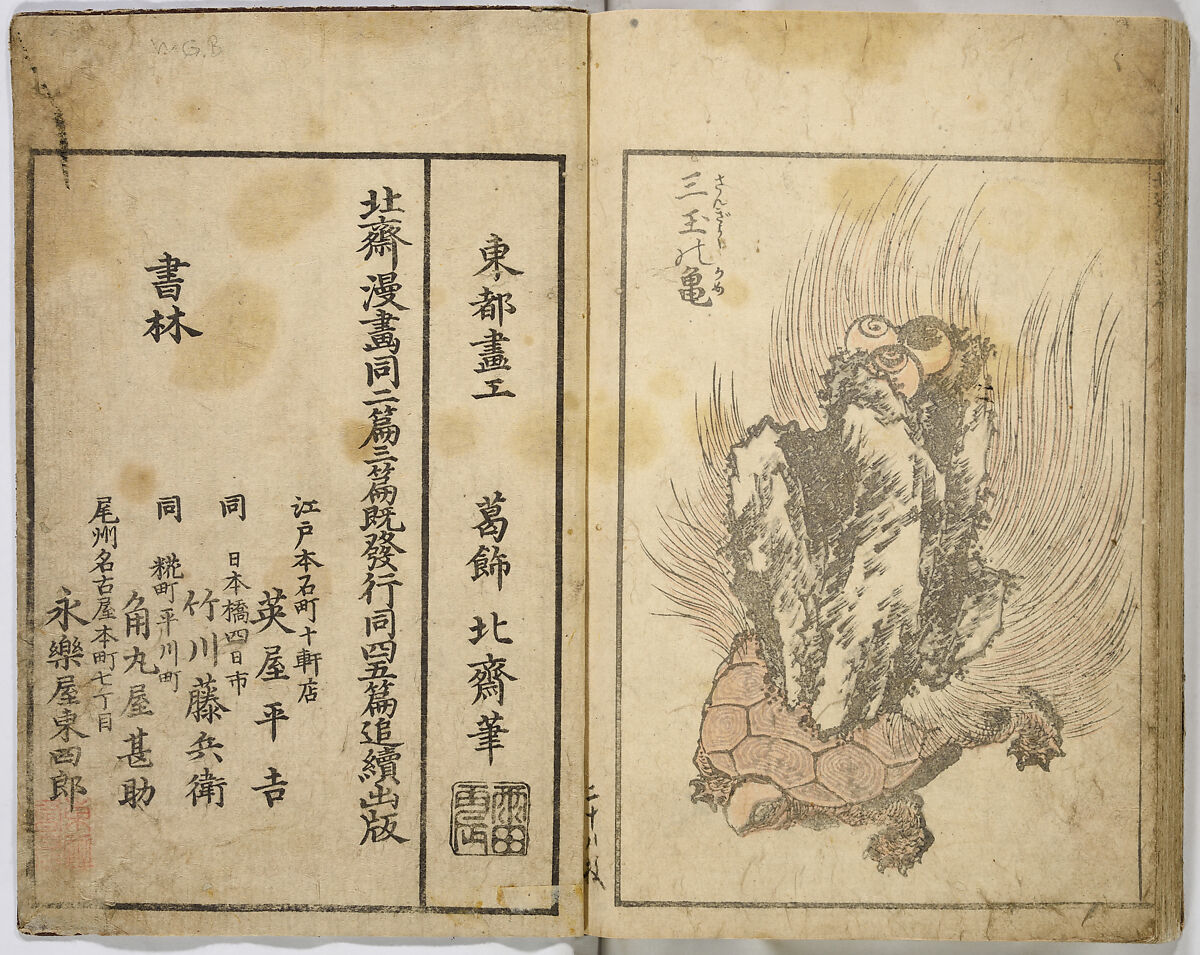 三玉の亀
さんぎよくのかめ
東都畫工 葛飾北齋筆
北齋漫畫同二篇三篇既發行同四五篇追續出版
書林
江戸本石町十軒店
英屋平吉
同 日本橋四日市
竹川藤兵衛
同 糀町平川町
角丸屋甚助
尾州名古屋本町七丁目
永樂屋東四郎